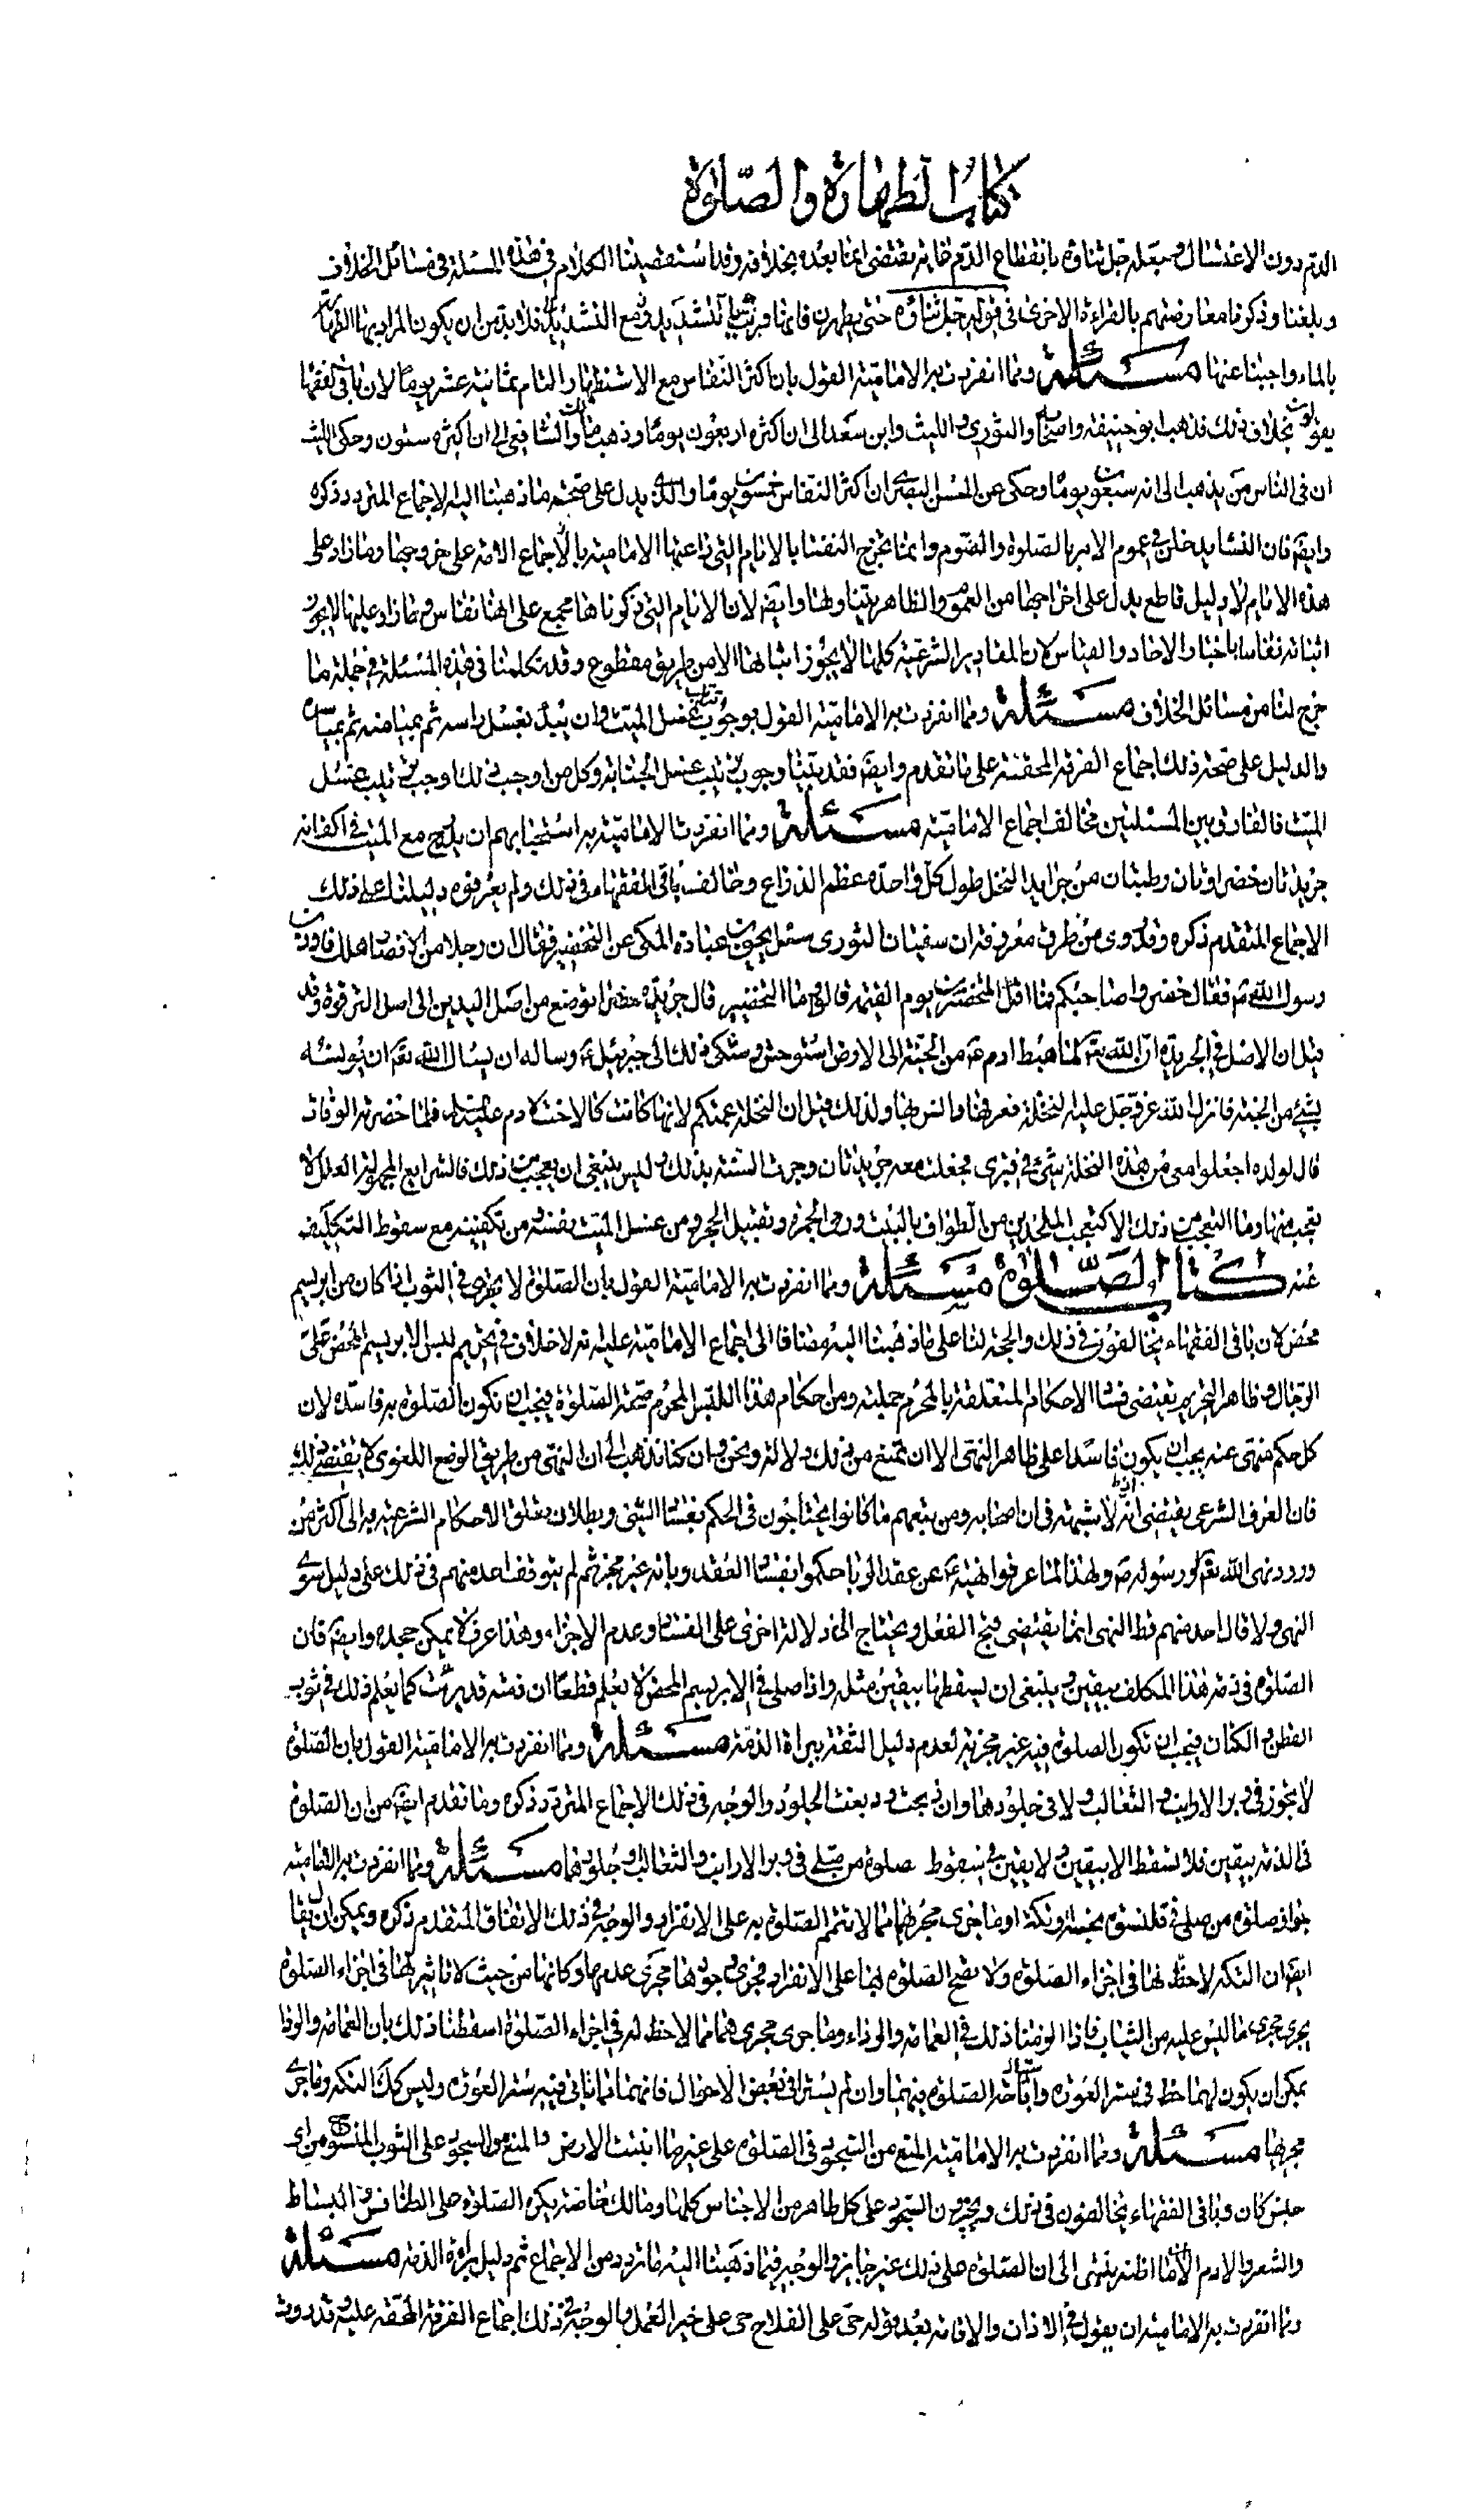 كتاب الطهارة والصلوة
الدم دون الاغتسال وجعله جل ثناؤه بانقطاع الدم فانه يقتضى انما بعده بخلافه وقد استقصينا الكلام في هذه المسئلة في مسائل الخلاف
وبلغنا وذكرنا معارضتهم بالقراءة الاخرى في قوله جل ثناؤه حتى يطهرن فانها قرئت بالتشديد ومع التشديد فلا بد من ان يكون المراد بها الطهارة
بالماء واجبنا عنها مسئلة ومما انفردت به الامامية القول بان اكثر النفاس مع الاستظهار التام ثمانية عشر يوما لان باقى الفقهاء
يقولون بخلاف ذلك فذهب ابو حنيفة واصحابه والثورى والليث وابن سعد الى ان اكثره اربعون يوما وذهب مالك والشافعي الى ان اكثره ستون وحكى الليث
ان في الناس من يذهب الى انه سبعون يوما وحكى عن الحسن البصرى ان اكثر النفاس خمسون يوما والذى يدل على صحة ما ذهبنا اليه الاجماع المتردد ذكره
وايضا فان النساء يدخلن في عموم الامر بالصلوة والصوم وانما يخرج النفساء بالايام التى راعتها الامامية بالاجماع الامة على خروجها وما زاد على
هذه الايام لا دليل قاطع يدل على اخراجها من العموم والظاهر يتناولها وايضا لان الايام التي ذكرناها مجمع على انها نفاس وما زاد عليها لا يجوز
اثباته نفاسا باخبار الاحاد والقياس لان المقادير الشرعية كلها لا يجوز اثباتها الا من طريق مقطوع وقد تكلمنا في هذه المسئلة في جملة ما
خرج لنا من مسائل الخلاف مسئلة ومما انفردت به الامامية القول بوجوب ترتيب غسل الميت وان يبدا بغسل راسه ثم بميامنه ثم بمياسره
والدليل على صحة ذلك اجماع الفرقة المحقة على ما تقدم وايضا فقد بينا وجوب ترتيب غسل الجنابة وكل من اوجب ذلك اوجب ترتيب غسل
الميت فالفارق بين المسئلتين مخالف اجماع الامامية مسئلة ومما انفردت الامامية به استحبابهم ان يدرج مع الميت في اكفانه
جريدتان خضراوتان رطبتان من جرايد النخل طول كل واحدة عظم الذراع وخالف باقى الفقهاء في ذلك ولم يعرفوه دليلنا على ذلك
الاجماع المتقدم ذكره وقد روى من طرق معروفة ان سفيان الثورى سئل يحيى بن عبادة المكى عن التخضير فقال ان رجلا من الانصار هلك فاوذن
رسول الله ص فقال خضروا صاحبكم فما اقل المخضرين يوم القيمة قالوا وما التخضير قال جريدة خضراء توضع من اصل اليدين الى اصل الترقوة وقد
قيل ان الاصل في الجريدة ان الله تعالى لما هبط ادم ع من الجنة الى الارض استوحش وشكى ذلك الى جبرئيل ع وساله ان يسال الله تعالى ان يونسه
بشئ من الجنة فانزل الله عز وجل عليه النخلة فعرفها وانس بها ولذلك قيل ان النخلة عمتكم لانها كانت كالاخت لادم عليه السلام فلما حضرته الوفاة
قال لولده اجعلوا معى من هذه النخلة شئ في قبرى فجعلت معه جريدتان وجرت السنة بذلك وليس ينبغى ان يعجب من ذلك فالشرايع المجهولة العلل لا
يعجب منها وما التعجب من ذلك الا كتعجب الملحدين من الطواف بالبيت ورمى الجمرة وتقبيل الحجر ومن غسل الميت بنفسه من تكفينه مع سقوط التكليف
عنه كتاب الصلوة مسئلة ومما انفردت به الامامية القول بان الصلوة لا يجزى في الثوب اذا كان من ابريسم
محض لان باقى الفقهاء يخالفون في ذلك والحجة لنا على ما ذهبنا اليه مضافا الى اجماع الامامية عليه انه لا خلاف في تحريم لبس الابريسم المحض على
الرجال وظاهر التحريم يقتضى فساد الاحكام المتعلقة بالمحرم جملة ومن احكام هذا اللبس المحرم صحة الصلوة فيجب ان تكون الصلوة به فاسدة لان
كل حكم منهى عنه يجب ان يكون فاسدا على ظاهر النهى الا ان تمنع من ذلك دلالة ونحن وان كنا نذهب الى ان النهى من طريق الوضع اللغوى لا يقتضى ذلك
فان العرف الشرعى يقتضى انه لا شبهة في ان الصحابة ومن تبعهم ما كانوا يحتاجون في الحكم بفساد الشئ وبطلان تعلق الاحكام الشرعية به الى اكثر من
ورود نهى الله تعالى ورسوله ص ولهذا لما عرفوا نهيه ع عن عقد الربا حكموا بفساد العقد وبانه غير مجز ثم لم يتوقف احد منهم في ذلك على دليل سوى
النهى ولا قال احد منهم قط النهى انما يقتضى قبح الفعل ويحتاج الى دلالة اخرى على الفساد وعدم الاجزاء وهذا عرف لا يمكن جحده وايضا فان
الصلوة في ذمة هذا المكلف بيقين وينبغى ان يسقطها بيقين مثله واذا صلى في الابريسم المحض لا يعلم قطعا ان ذمته قد برئت كما يعلم ذلك في ثوب
القطن والكتان فيجب ان تكون الصلوة فيه غير مجزية لعدم دليل الثقة ببراءة الذمة مسئلة ومما انفردت به الامامية القول بان الصلوة
لا تجوز في وبر الارانب والثعالب ولا في جلودها وان ذبحت ودبغت الجلود والوجه في ذلك الاجماع المتردد ذكره وما تقدم ايضا من ان الصلوة
في الذمة بيقين فلا تسقط الا بيقين ولا يقين في سقوط صلوة من صلى في وبر الارانب والثعالب وجلودها مسئلة ومما انفردت به الامامية
جواز صلوة من صلى في قلنسوة نجسة وتكة او ما جرى مجراها مما لا تتم الصلوة به على الانفراد والوجه في ذلك الاتفاق المتقدم ذكره ويمكن ان يقال
ايضا ان التكة لا حظ لها في اجزاء الصلوة ولا تصح الصلوة بها على الانفراد فجرى وجودها مجرى عدمها وكانها من حيث لا تاثير لها في اجزاء الصلوة
يجرى مجرى ما ليس عليه من الثياب فاذا الزمنا ذلك في العمامة والرداء وما جرى مجراهما مما لا حظ له في اجزاء الصلوة اسقطنا ذلك بان العمامة والرداء
يمكن ان يكون لهما حظ في ستر العورة واستباحة الصلوة فيهما وان لم يسترا في بعض الاحوال فانهما مما ياتى فيه ستر العورة وليس كك التكة وما جرى
مجراها مسئلة ومما انفردت به الامامية المنع من السجود في الصلوة على غير ما انبتت الارض والمنع من السجود على الثوب المنسوج من اى
جنس كان وباقى الفقهاء يخالفون في ذلك ويجيزون السجود على كل طاهر من الاجناس كلها ومالك خاصة يكره الصلوة على الطنافس والبساط
والشعر والادم الا انا اظنه ينتهى الى ان الصلوة على ذلك غير جايز والوجه فيما ذهبنا اليه ما تردد من الاجماع ثم دليل براءة الذمة مسئلة
ومما انفردت به الامامية ان يقول في الاذان والاقامة بعد قوله حى على الفلاح حى على خير العمل والوجه في ذلك اجماع الفرقة المحقة عليه وقد روت